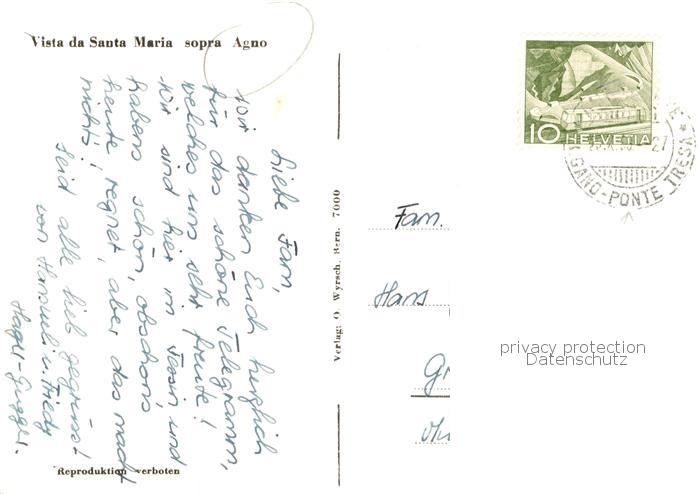 Vista da Santa Maria sopra Agno
Liebe Fam,
wir danken Euch herzlich
für das schöne Telegramm,
welches uns sehr freute!
Wir sind hier im Tessin, und
habens schön, obschons
heute regnet, aber das macht
nichts!
Seid alle lieb gegrüsst
von Hansueli u. Friedy
Hagi-Guggi.
Reproduktion verboten
Verlag: O. Wyrsch, Bern. 7000
10 HELVETIA
GANO-PONTE TRESA
27
Fam.
Hans
G
privacy protection
Datenschutz